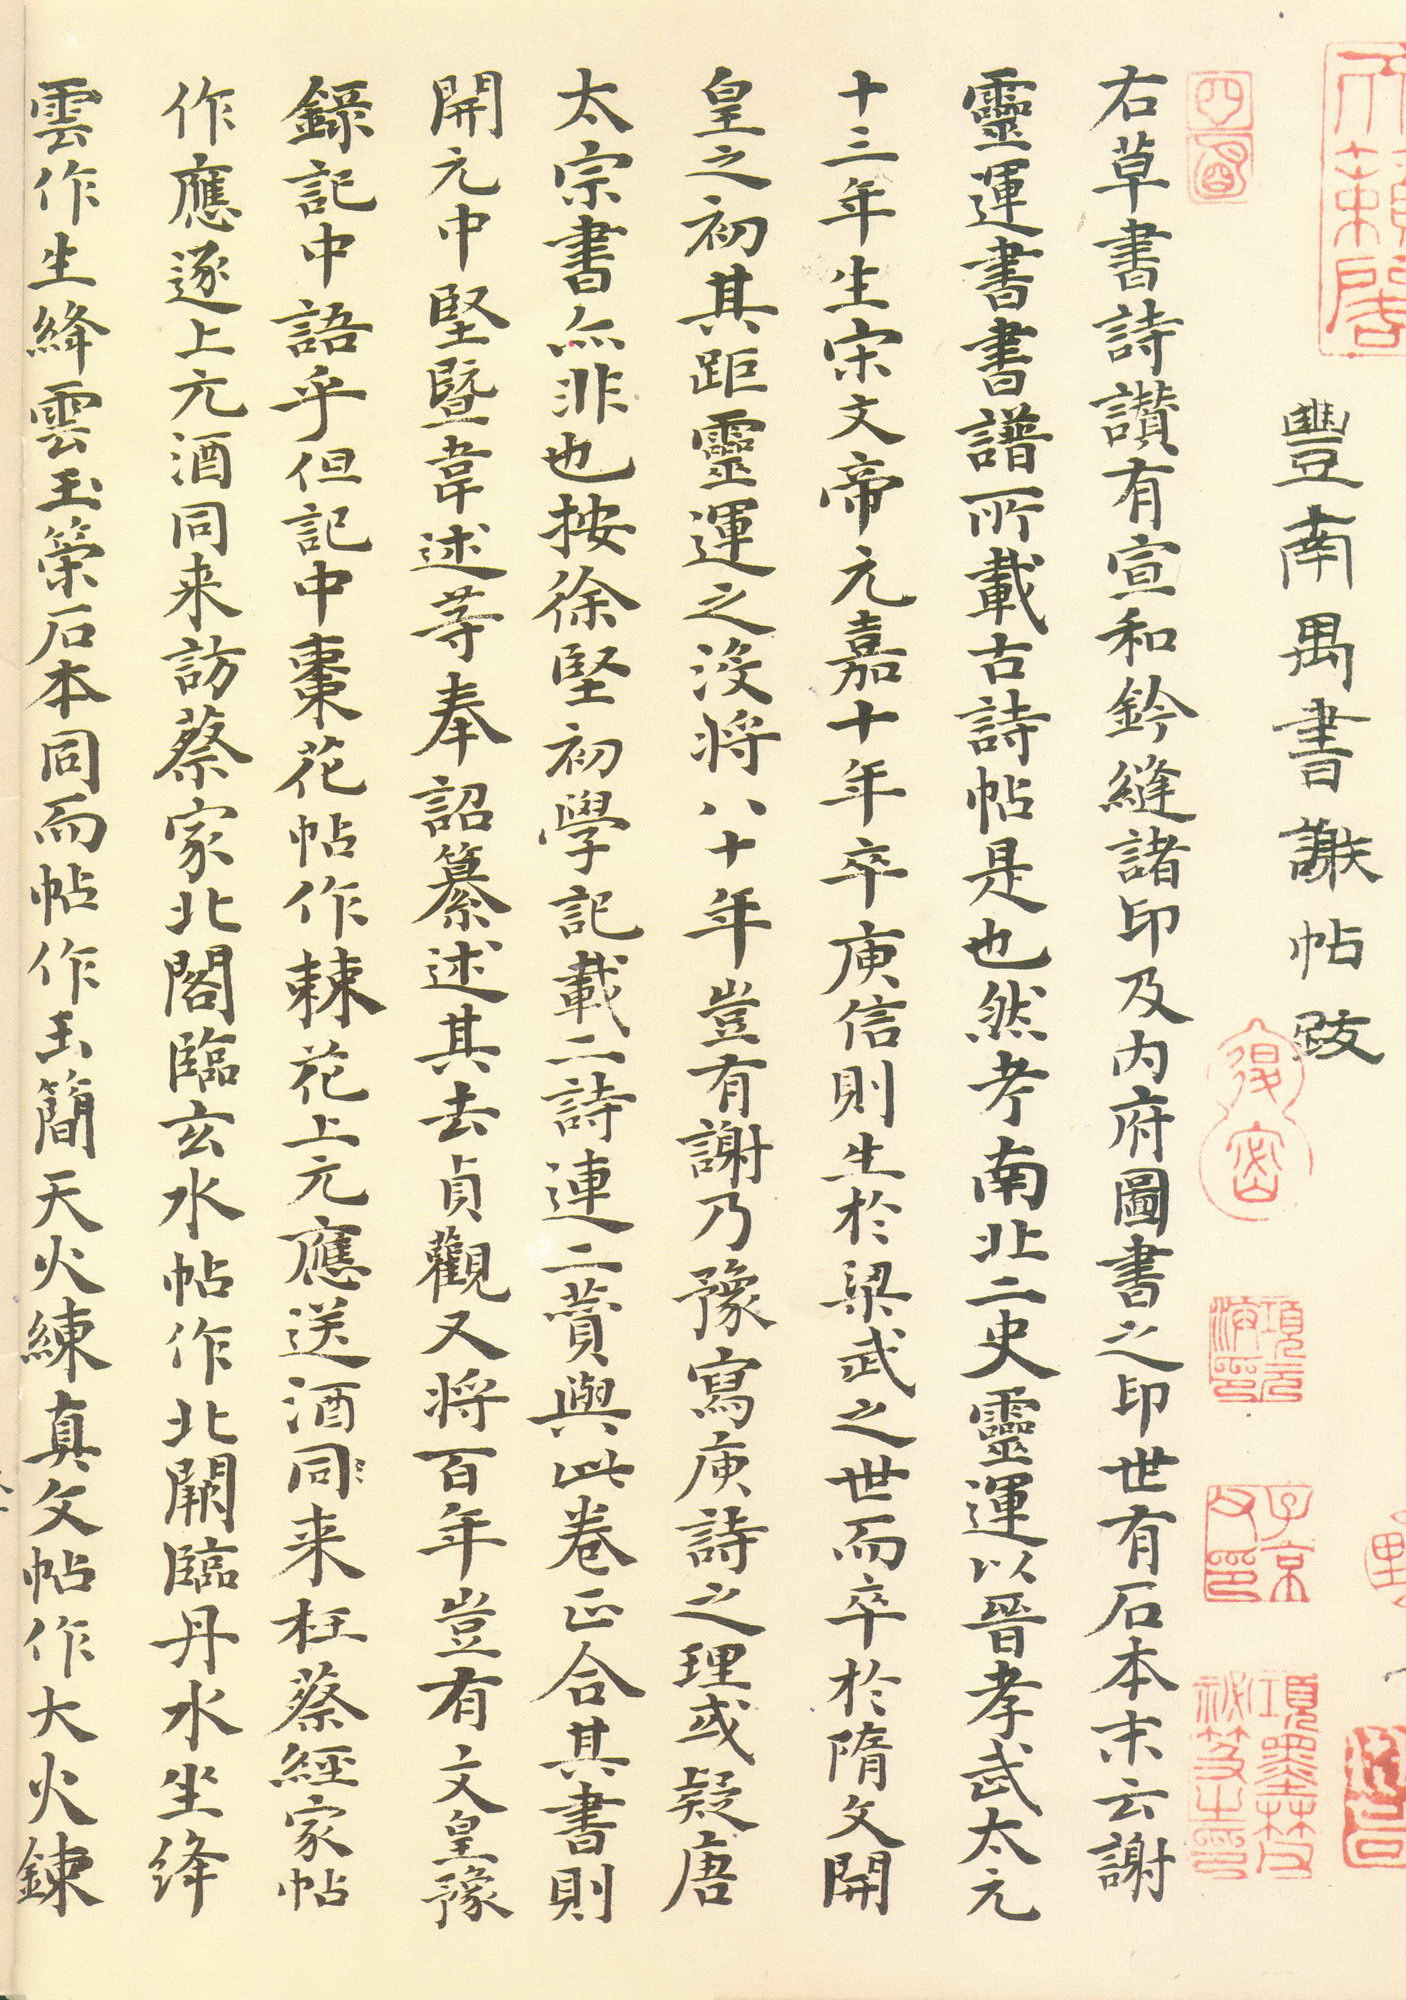 豐南禺書謝帖跋
右草書詩讃有宣和鈐縫諸印及内府圖書之印世有石本末云謝
靈運書書譜所載古詩帖是也然考南北二史靈運以晉孝武太元
十三年生宋文帝元嘉十年卒庾信則生於梁武之世而卒於隋文開
皇之初其距靈運之没将八十年豈有謝乃豫寫庾詩之理或疑唐
太宗書亦非也按徐堅初學記載二詩連二賛與此卷正合其書則
開元中堅暨韋述等奉詔纂述其去貞觀又将百年豈有文皇豫
錄記中語乎但記中棗花帖作棘花上元應送酒同来在蔡經家帖
作應逐上元酒同来訪蔡家北閣臨玄水帖作北闕臨丹水坐絳
雲作生絳雲玉策石本同而帖作玉簡天火練真文帖作大火鍊
天籟閣
項元汴印
子京父印
項墨林父秘笈之印